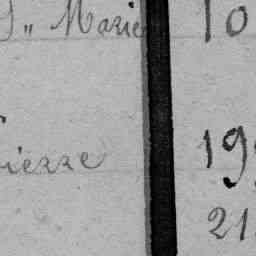 S" Marie 10
ierre 19
21